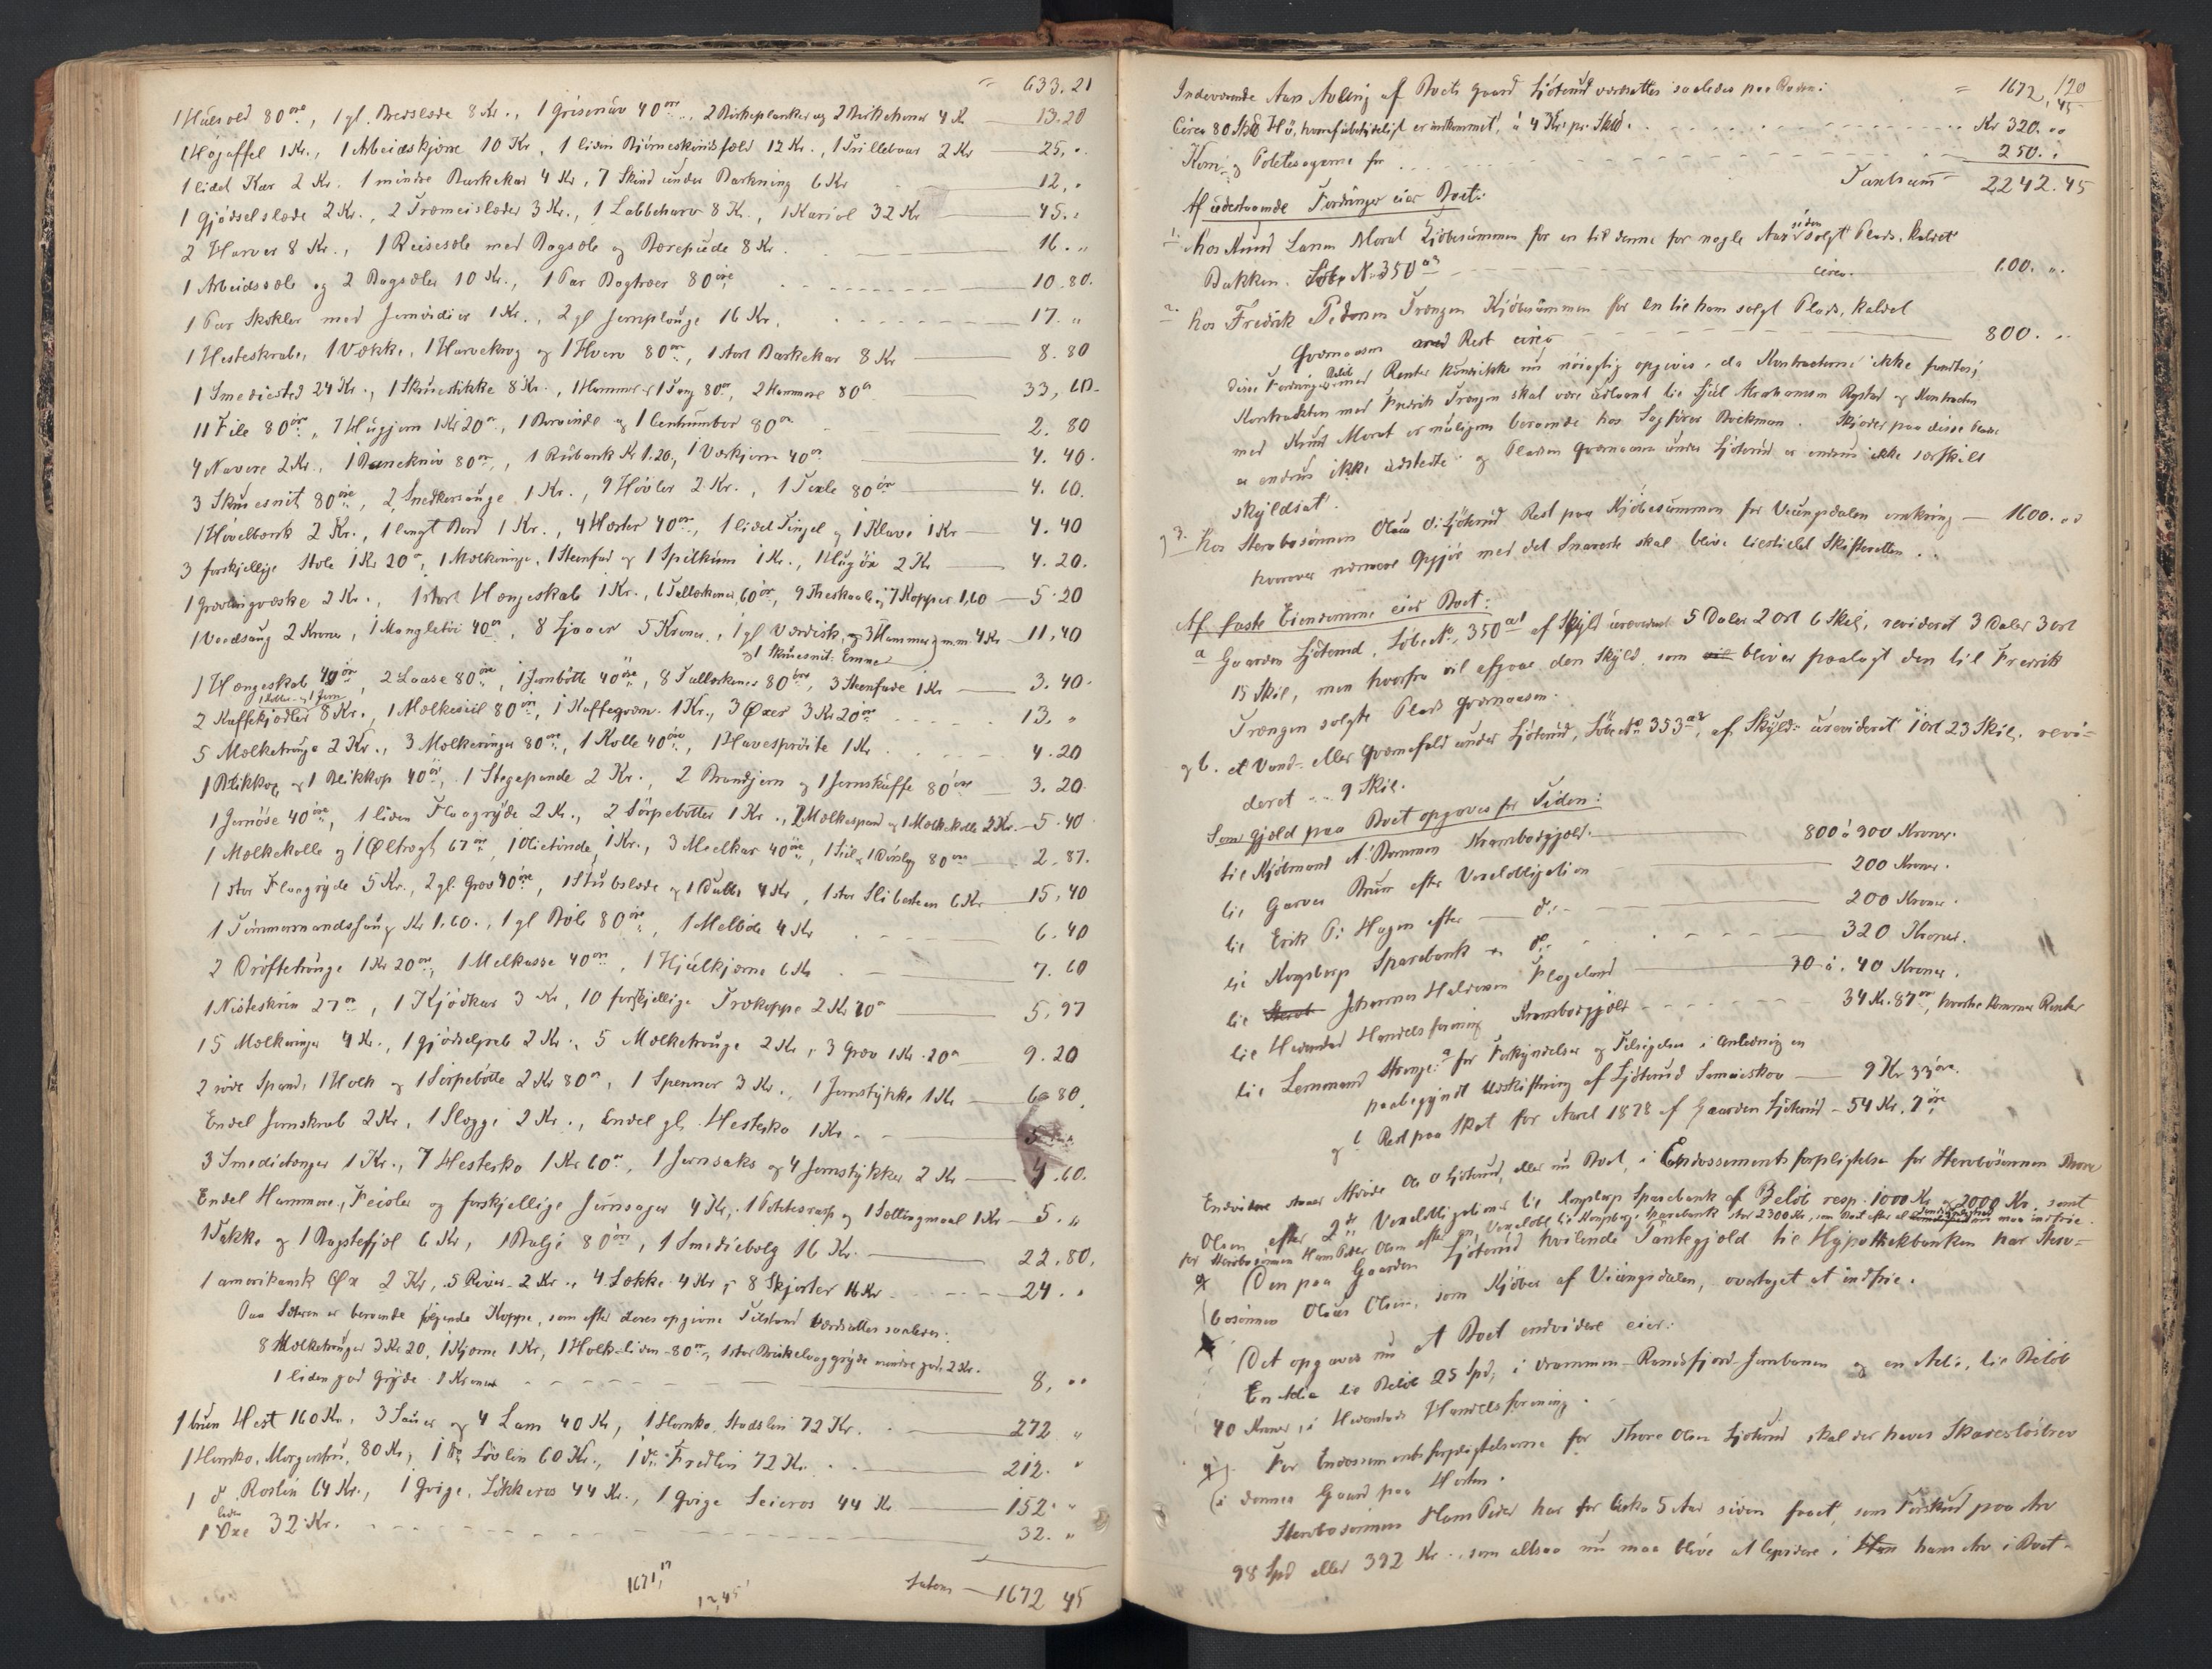 = 633.21
1 Huesold 80 øre, 1 gl. Bredslæde 8 Kr., 1 Grisenav 40 ør, 2 Birkeplanker og 2 Birkehoner 4 Kr — 13.20
1 Høgaffel 1 Kr., 1 Arbeidskjærre 10 Kr, 1 liden Bjørneskindsfæld 12 Kr., 1 Trillebaar 2 Kr — 25. "
1 lidet Kar 2 Kr. 1 mindre Barkekar 4 Kr, 7 Skind under Barkning 6 Kr — 12. "
1 Gjødselslæde 2 Kr., 2 Tømeislæder 3 Kr., 1 Labbeharv 8 Kr., 1 Kariol 32 Kr — 45. "
2 Harver 8 Kr., 1 Reisesæle med Bogsæle og Bærepude 8 Kr. — 16. "
1 Arbeidssæle og 2 Bogsæler 10 Kr., 1 Par Bogtræer 80 øre — 10.80.
1 Par Skokler med Jernvidier 1 Kr., 2 gl Jernplouge 16 Kr. — 17. "
1 Hesteskrabe, 1 Vække, 1 Harvekrog og 1 Hverv 80 ør, 1 stort Barkekar 8 Kr — 8.80
1 Smediested 24 Kr., 1 Skruestikke 8 Kr., 1 Hammer og 1 Tang 80 ør, 2 Hammere 80 ør — 33,60
11 File 80 øre, 7 Hugjern 1 Kr 20 ør, 1 Borvinde og 1 Centrumbor 80 ør — 2.80
4 Navere 2 Kr., 1 Baandkniv 80 ør, 1 Rubank Kr 1.20, 1 Værkjern 40 ør — 4.40.
3 Skruesnit 80 øre, 2 Snedkersauge 1 Kr., 9 Høvler 2 Kr., 1 Texle 80 ør — 4.60.
1 Høvelbænk 2 Kr., 1 langt Bord 1 Kr., 4 Hæster 40 ør, 1 lidet Tinzel og 1 Klave 1 Kr — 4.40
3 forskjellige Stole 1 Kr 20 ør, 1 Melkeringe, 1 Steenfad og 1 Spilkum 1 Kr., 1 Hugøx 2 Kr — 4.20.
1 Grævlingvæske 2 Kr., 1 stort Hængeskab 1 Kr., 6 Tallerkener 60 ør, 9 Theskaale, 7 Kopper 1,60 — 5.20
1 Vedsaug 2 Kroner, 1 Mangletøi 40 ør, 8 Ljaaer 5 Kroner, 1 gl Værdisk, og 3 Hammer m.m 4 Kr — 11,40
og 1 Skruesnit Emne
1 Hængeskab 40 ør, 2 Laase 80 øre, 1 Jernbøtte 40 øre, 8 Tallerkener 80 øre, 3 Steenfade 1 Kr — 3.40.
2 Kaffekjedler 8 Kr., 1 Melkesiil 80 øre, 1 Kaffeqværn 1 Kr., 3 Øxer 3 Kr 20 øre — 13. "
5 Melketrouge 2 Kr., 3 Melkeringer 80 øre, 1 Kolle 40 øre, 1 Havesprøite 1 Kr. — 4.20
1 Blikkop og 1 Blikkop 40 ør, 1 Stegepande 2 Kr., 2 Brandjern og 1 Jernskuffe 80 øre — 3.20
1 Jernøse 40 øre, 1 liden Flaagryde 2 Kr., 2 Sørpebøtter 1 Kr., 2 Melkespand og 1 Melkekolle 2 Kr. — 5.40
1 Melkekolle og 1 Øltragt 67 ør, 1 Olietønde 1 Kr., 3 Meelkar 40 øre, 1 Siil, 1 Dørslag 80 øre — 2.87.
1 stor Flaagryde 5 Kr., 2 gl. Grev 40 øre, 1 Stubslæde og 1 Bulle 4 Kr, 1 stor Slibesteen 6 Kr — 15.40
1 Tømmermandssaug Kr 1.60., 1 gl Bøle 80 øre, 1 Melbøle 4 Kr — 6.40
2 Drøftetrouge 1 Kr 20 øre, 1 Melkasse 40 ør, 1 Hjulkjærne 6 Kr — 7.60
1 Nisteskrin 27 ør, 1 Kjødkar 3 Kr, 10 forskjellige Trækoppe 2 Kr 70 ør — 5.97
15 Melkeringer 4 Kr., 1 Gjødselgreb 2 Kr., 5 Melketrouge 2 Kr., 3 Grev 1 Kr. 20 ør — 9.20
2 røde Spand, 1 Holk og 1 Sørpebøtte 2 Kr 80 ør, 1 Spenner 3 Kr., 1 Jernstykke 1 Kr — 6.80
Endel Jernskrab 2 Kr, 1 Slægge 2 Kr., Endel gl. Hestesko 1 Kr. — 5. "
3 Smedietænger 1 Kr., 7 Hestesko 1 Kr 60 ør, 1 Jernsaks og 4 Jernstykker 2 Kr — 4.60.
Endel Hammere, Feisler og forskjellige Jernsager 4 Kr, 1 Potetesrasp og 1 Sættingmaal 1 Kr — 5. "
1 Takke og 1 Bagstefjøl 6 Kr, 1 Balje 80 øre, 1 Smediebælg 16 Kr. — 22.80.
1 amerikansk Øx 2 Kr, 5 River 2 Kr., 4 Sække 4 Kr, 8 Skjorter 16 Kr — 24. "
Paa Sæteren er beroende følgende Koppe, som efter deres opgivne Tilstand værdsattes saaledes:
8 Melketrouger 3 Kr 20, 1 Kjærne 1 Kr, 1 Holk liden 80 ør, 1 stor Brukelvaggryde mindre god 2 Kr.
1 liden god Gryde 1 Kroner — 8. "
1 brun Hest 160 Kr., 3 Sauer og 4 Lam 40 Kr, 1 Hornko, Stadslin 72 Kr. — 272 "
1 Hornko, Morgenfrü, 80 Kr, 1 do Løvlin 60 Kr., 1 do Fredlin 72 Kr. — 212. "
1 do Roslin 64 Kr., 1 Qvige, Løkkeros 44 Kr., 1 Qvige Seieros 44 Kr — 152. "
1 liden Oxe 32 Kr. — 32. "
1671,17
12,45
Latus — 1672 45
120
Indeværende Aars Avling af Boets Gaard Ljøterud værdsattes saaledes paa Roden: = 1672,45
Circa 80 Sk℔ Hø, hvoraf ubetydeligt er indkommet, à 4 Kr. pr. Sk℔. — Kr 320. "
Korn- og Potetesagrene for — 250. "
Tansum — 2242.45
Af udestaaende Fordringer eier Boet:
1. Hos Knud Larsen Morat Kjøbesummen for en til denne for nogle Aar siden solgt Plads, kaldet
Bakken. Løbe No 350 a3 — circa. 100. "
2. hos Fredrik Pedersen Trangen Kjøbesummen for en til ham solgt Plads, kaldet
Qværnaasen med Rest circa — 800. "
disse Fordringers Beløb med Renter kunde ikke nu nøiagtig opgives, da Kontracterne ikke fandtes;
Kontrakten med Fredrik Trangen skal være udlaant til Kjul Abrahamsen Rygstad og Kontracten
med Knud Morat er muligens beroende hos Sagfører Beckman. Skjøder paa disse Pladse
er endnu ikke udstedte og Pladsen Qværnaasen under Ljøterud er endnu ikke særskilt
skyldsat.
og 3. hos Stervbosønnen Olaus O. Ljøterud Rest paa Kjøbesummen for Viungsdalen omkring — 1600. "
hvorover nærmere Opgjør med det Snareste skal blive tilstillet Skifteretten.
Af faste Eiendomme eier Boet:
a Gaarden Ljøterud, Løbe No. 350 a1 af Skyld urevideret 5 Daler 2 ort 6 Skil, revideret 3 Daler 3 ort
15 Skil, men hvorfra vil afgaae den Skyld, som vil bliver paalagt den til Fredrik
Trangen solgte Plads Qværnaasen.
og b. et Vand- eller Qværnefald under Ljøterud, Løbe No 353 a2, af Skyld: urevideret 1 ort 23 Skil. revi-
deret - - 9 Skil.
Som Gjæld paa Boet opgaves for Tiden:
til Kjøbmand A. Bommen Krambodgjæld. — 800 à 900 Kroner.
til Garver Bruun efter Vexelobligation — 200 Kroner.
til Erik P: Hagen efter — do — 200 Kroner.
til Kongsberg Sparebank — do — 320 Kroner.
til Johannes Halvorsen Flageland — 30 à 40 Kroner.
til Hedenstad Handelsforening Krambodgjæld — 34 Kr. 87 ør, hvortil kommer Renter
til Lensmand Strange: a for Forkyndelser og Tilsigelser i Anledning en
paabegyndt Udskiftning af Ljøterud Sameieskov — 9 Kr 33 øre.
og b Rest paa Skat for Aaret 1878 af Gaarden Ljøterud — 54 Kr. 7 øre
Endvidere staaer Afdøde Ole O Ljøterud, eller nu Boet, i Endossements forpligtelse for Stervbosønnen Thore
Olsen efter 2de Vexelobligationer til Kongsberg Sparebank af Beløb resp. 1000 Kr og 2000 Kr. samt
for Stervbosønnen Hans Peder Olsen efter en Vexelobl. til Kongsberg Sparebank stor 2300 Kr, som Boet efter al Sandsynlighed maa indfrie.
Den paa Gaarden Ljøterud hvilende Pantegjæld til Hypothekbanken har Sterv-
bosønnen Olaus Olsen, som Kjøber af Viungsdalen, overtaget at indfrie.
Det opgaves nu at Boet endvidere eier:
En Actie til Beløb 25 Spd, i Drammen-Randsfjord-Jernbanen og en Actie, til Beløb
40 Kroner, i Hedenstads Handelsforening.
For Endossementsforpligtelserne for Thore Olsen Ljøterud skal der haves Skadesløsbrev
i dennes Gaard paa Holm.
Stervbosønnen Hans Peder har for cirka 5 Aar siden faaet, som Forskud paa Arv
98 Spd eller 392 Kr., som altsaa nu maa blive at liqvidere i hans Arv i Boet.